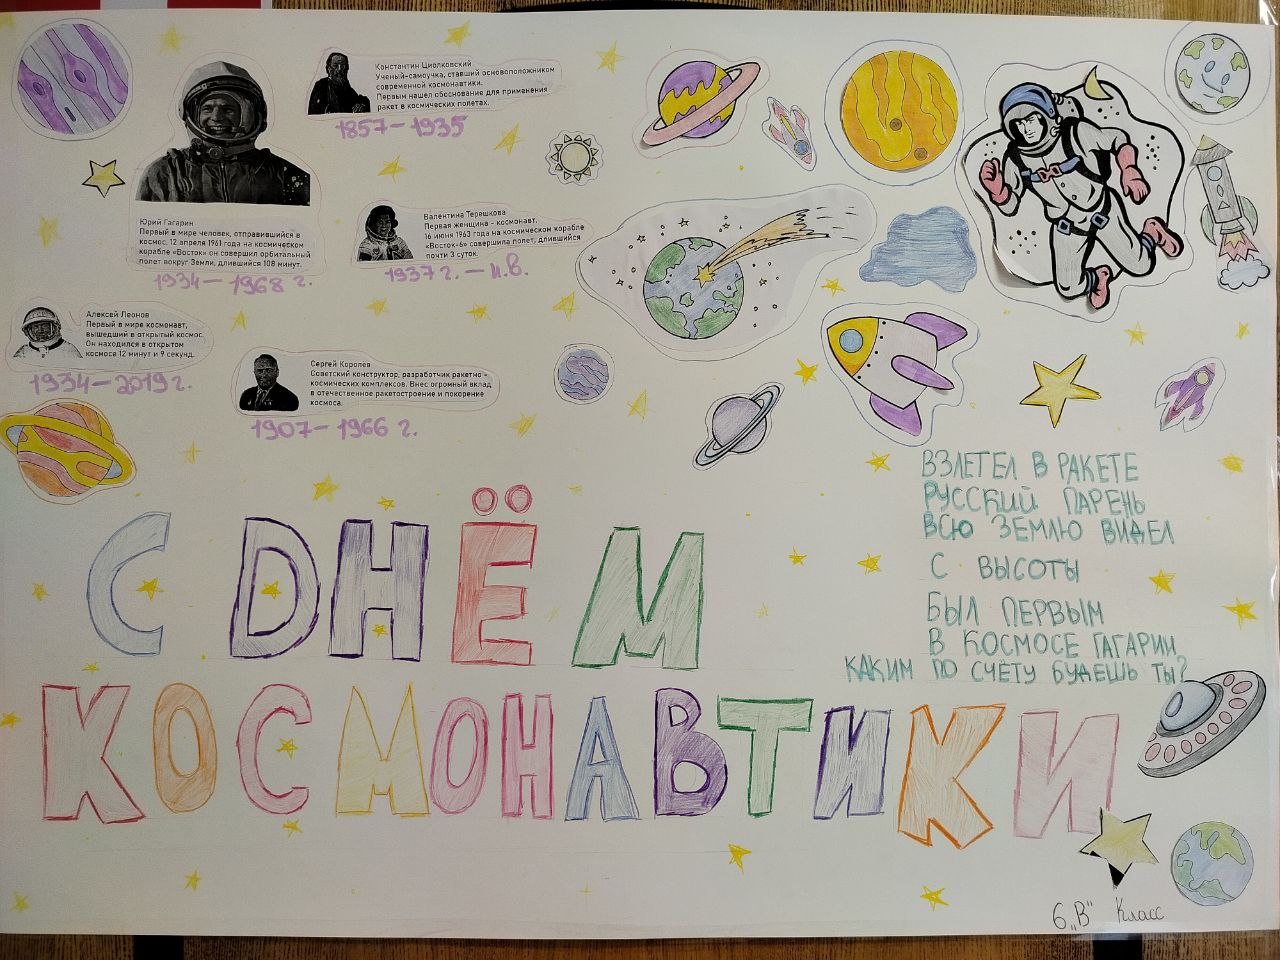 Константин Циолковский
Ученый-самоучка, ставший основоположником
современной космонавтики.
Первым нашел обоснование для применения
ракет в космических полетах.
1857-1935
Юрий Гагарин
Первый в мире человек, отправившийся в
космос. 12 апреля 1961 года на космическом
корабле «Восток» он совершил орбитальный
полет вокруг Земли, длившийся 108 минут.
1934-1968 г.
Валентина Терешкова
Первая женщина - космонавт.
16 июня 1963 года на космическом корабле
«Восток-6» совершила полет, длившийся
почти 3 суток.
1937 г. - н.в.
Алексей Леонов
Первый в мире космонавт,
вышедший в открытый космос.
Он находился в открытом
космосе 12 минут и 9 секунд.
1934-2019 г.
Сергей Королев
Советский конструктор, разработчик ракетно -
космических комплексов. Внес огромный вклад
в отечественное ракетостроение и покорение
космоса.
1907-1966 г.
ВЗЛЕТЕЛ В РАКЕТЕ
РУССКИЙ ПАРЕНЬ
ВСЮ ЗЕМЛЮ ВИДЕЛ
С ВЫСОТЫ
БЫЛ ПЕРВЫМ
В КОСМОСЕ ГАГАРИН
КАКИМ ПО СЧЁТУ БУДЕШЬ ТЫ?
С ДНЁМ
КОСМОНАВТИКИ
6 „В" Класс